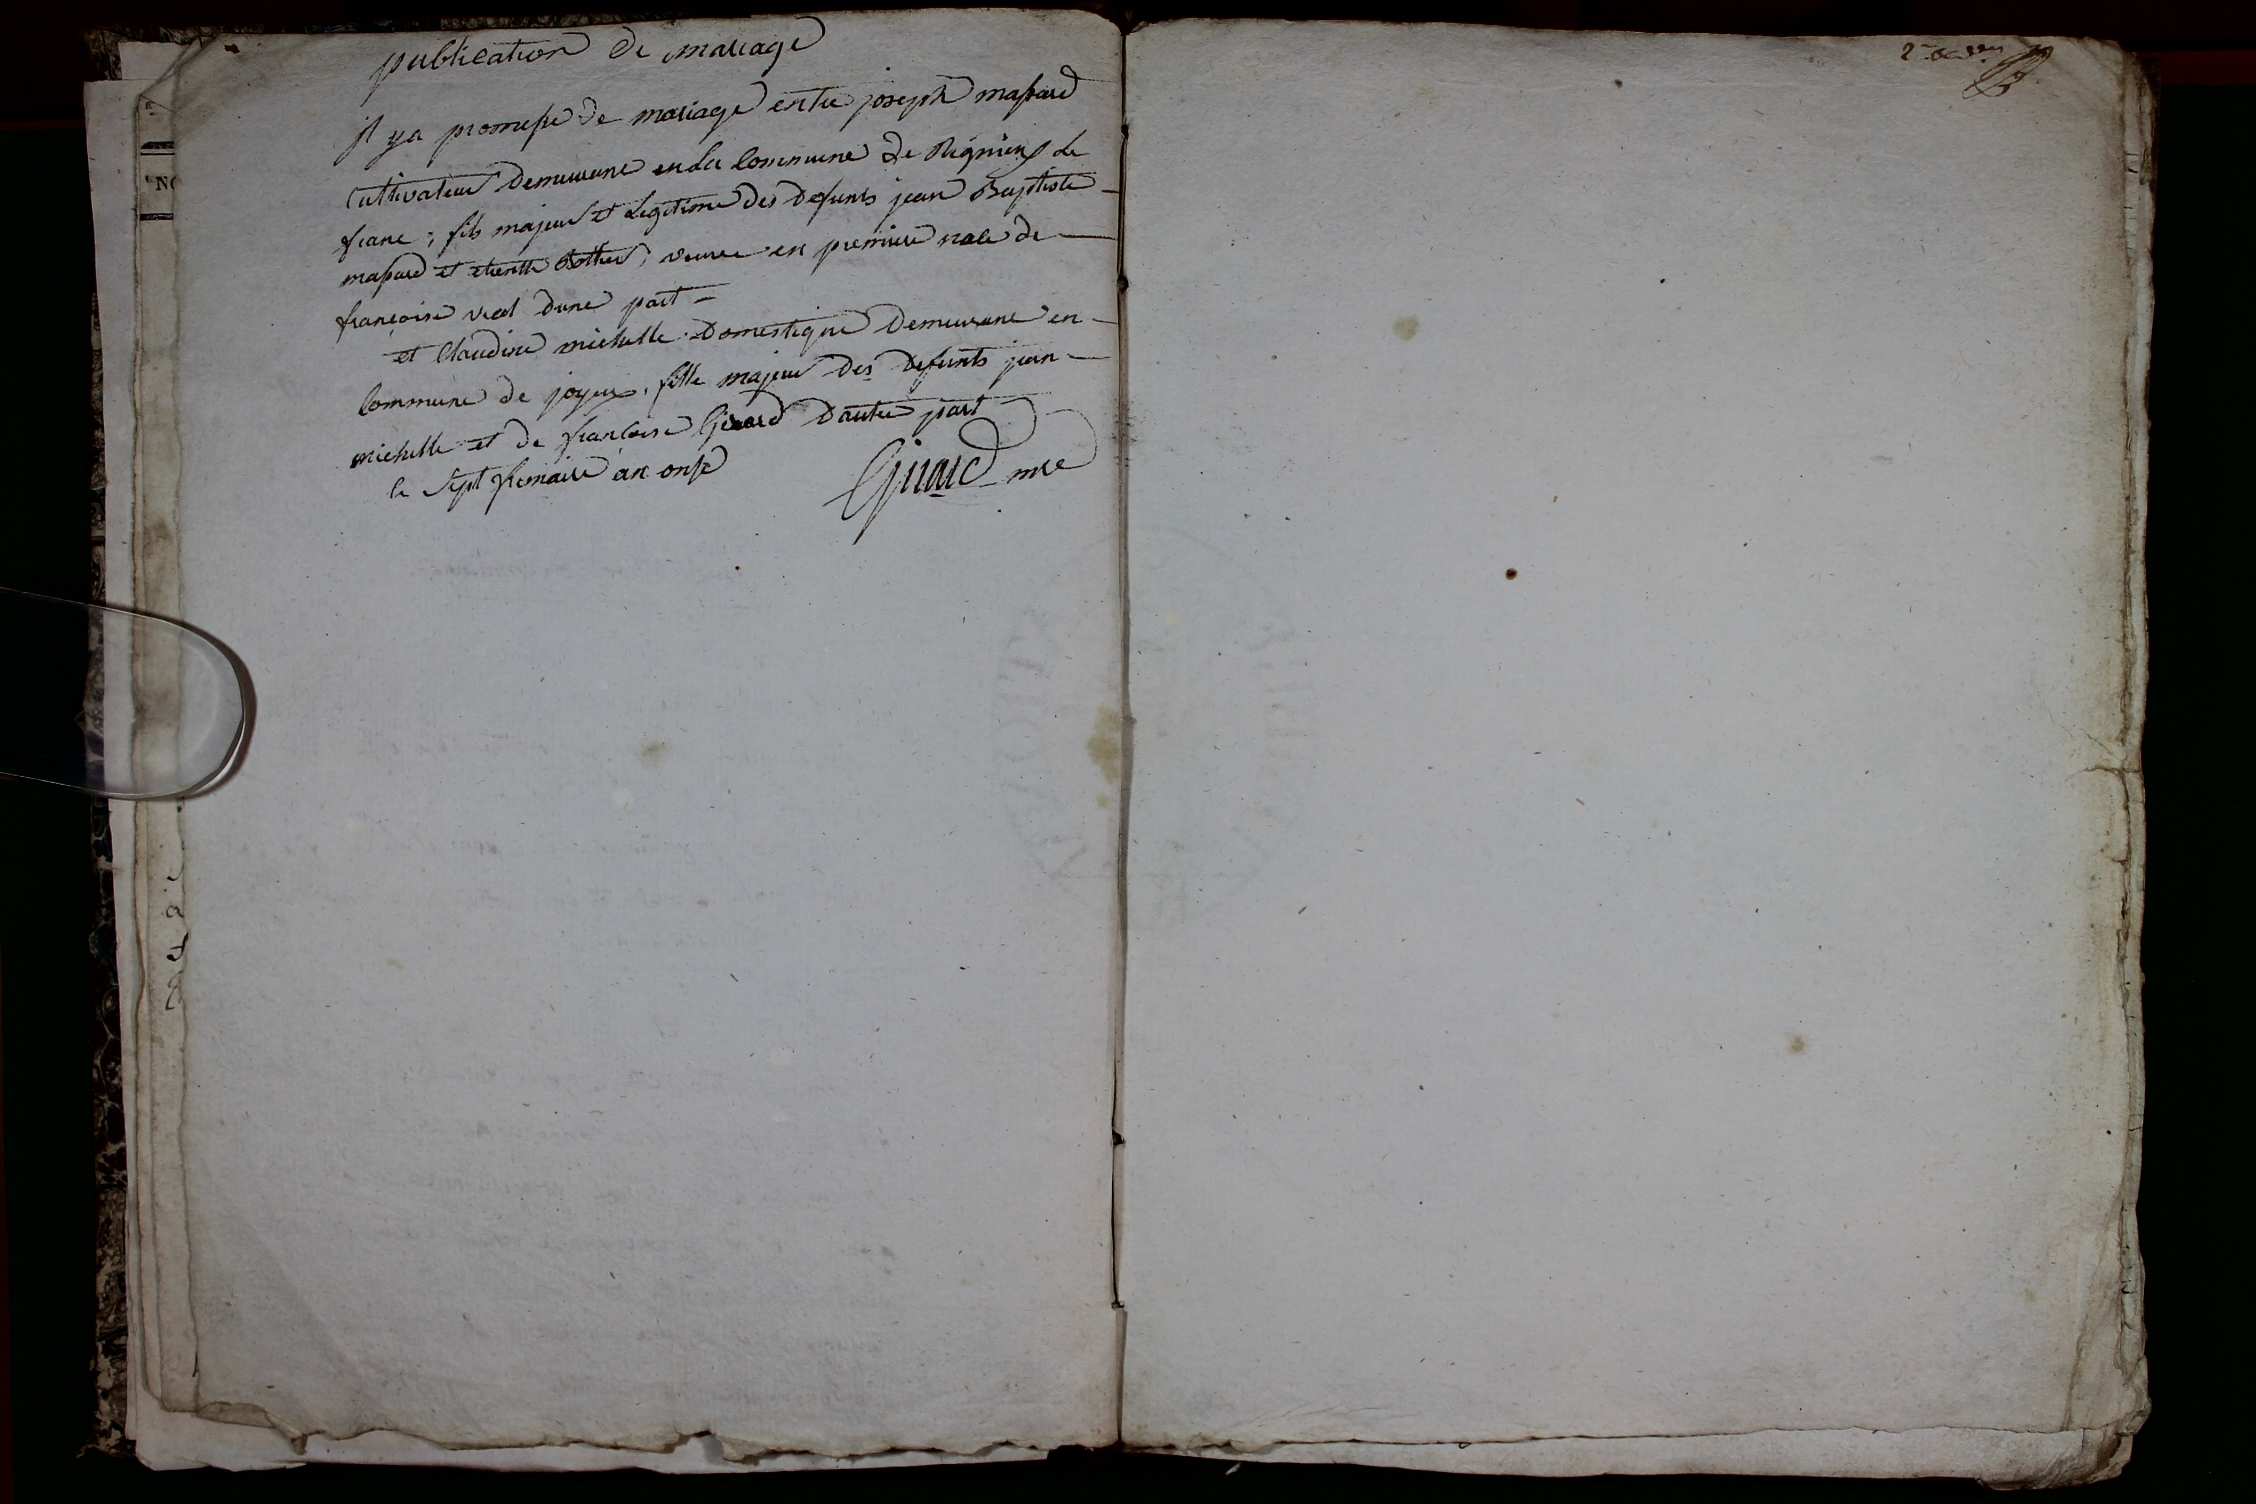 publication de mariage
il y a promesse de mariage entre joseph massard
Cultivateur demeurant en la Commune de Rignieux le
franc, fils majeur et Legitime des defunts jean Baptiste
massard et etienette veuve en premiere noce de
françoise vial dune part
et Claudine michelle Domestique Demeurant en
Commune de joyeux, fille majeure des defunts jean
michelle et de francoise Girard Dautre part
le sept frimaire an onse
Girard mre
2
NO